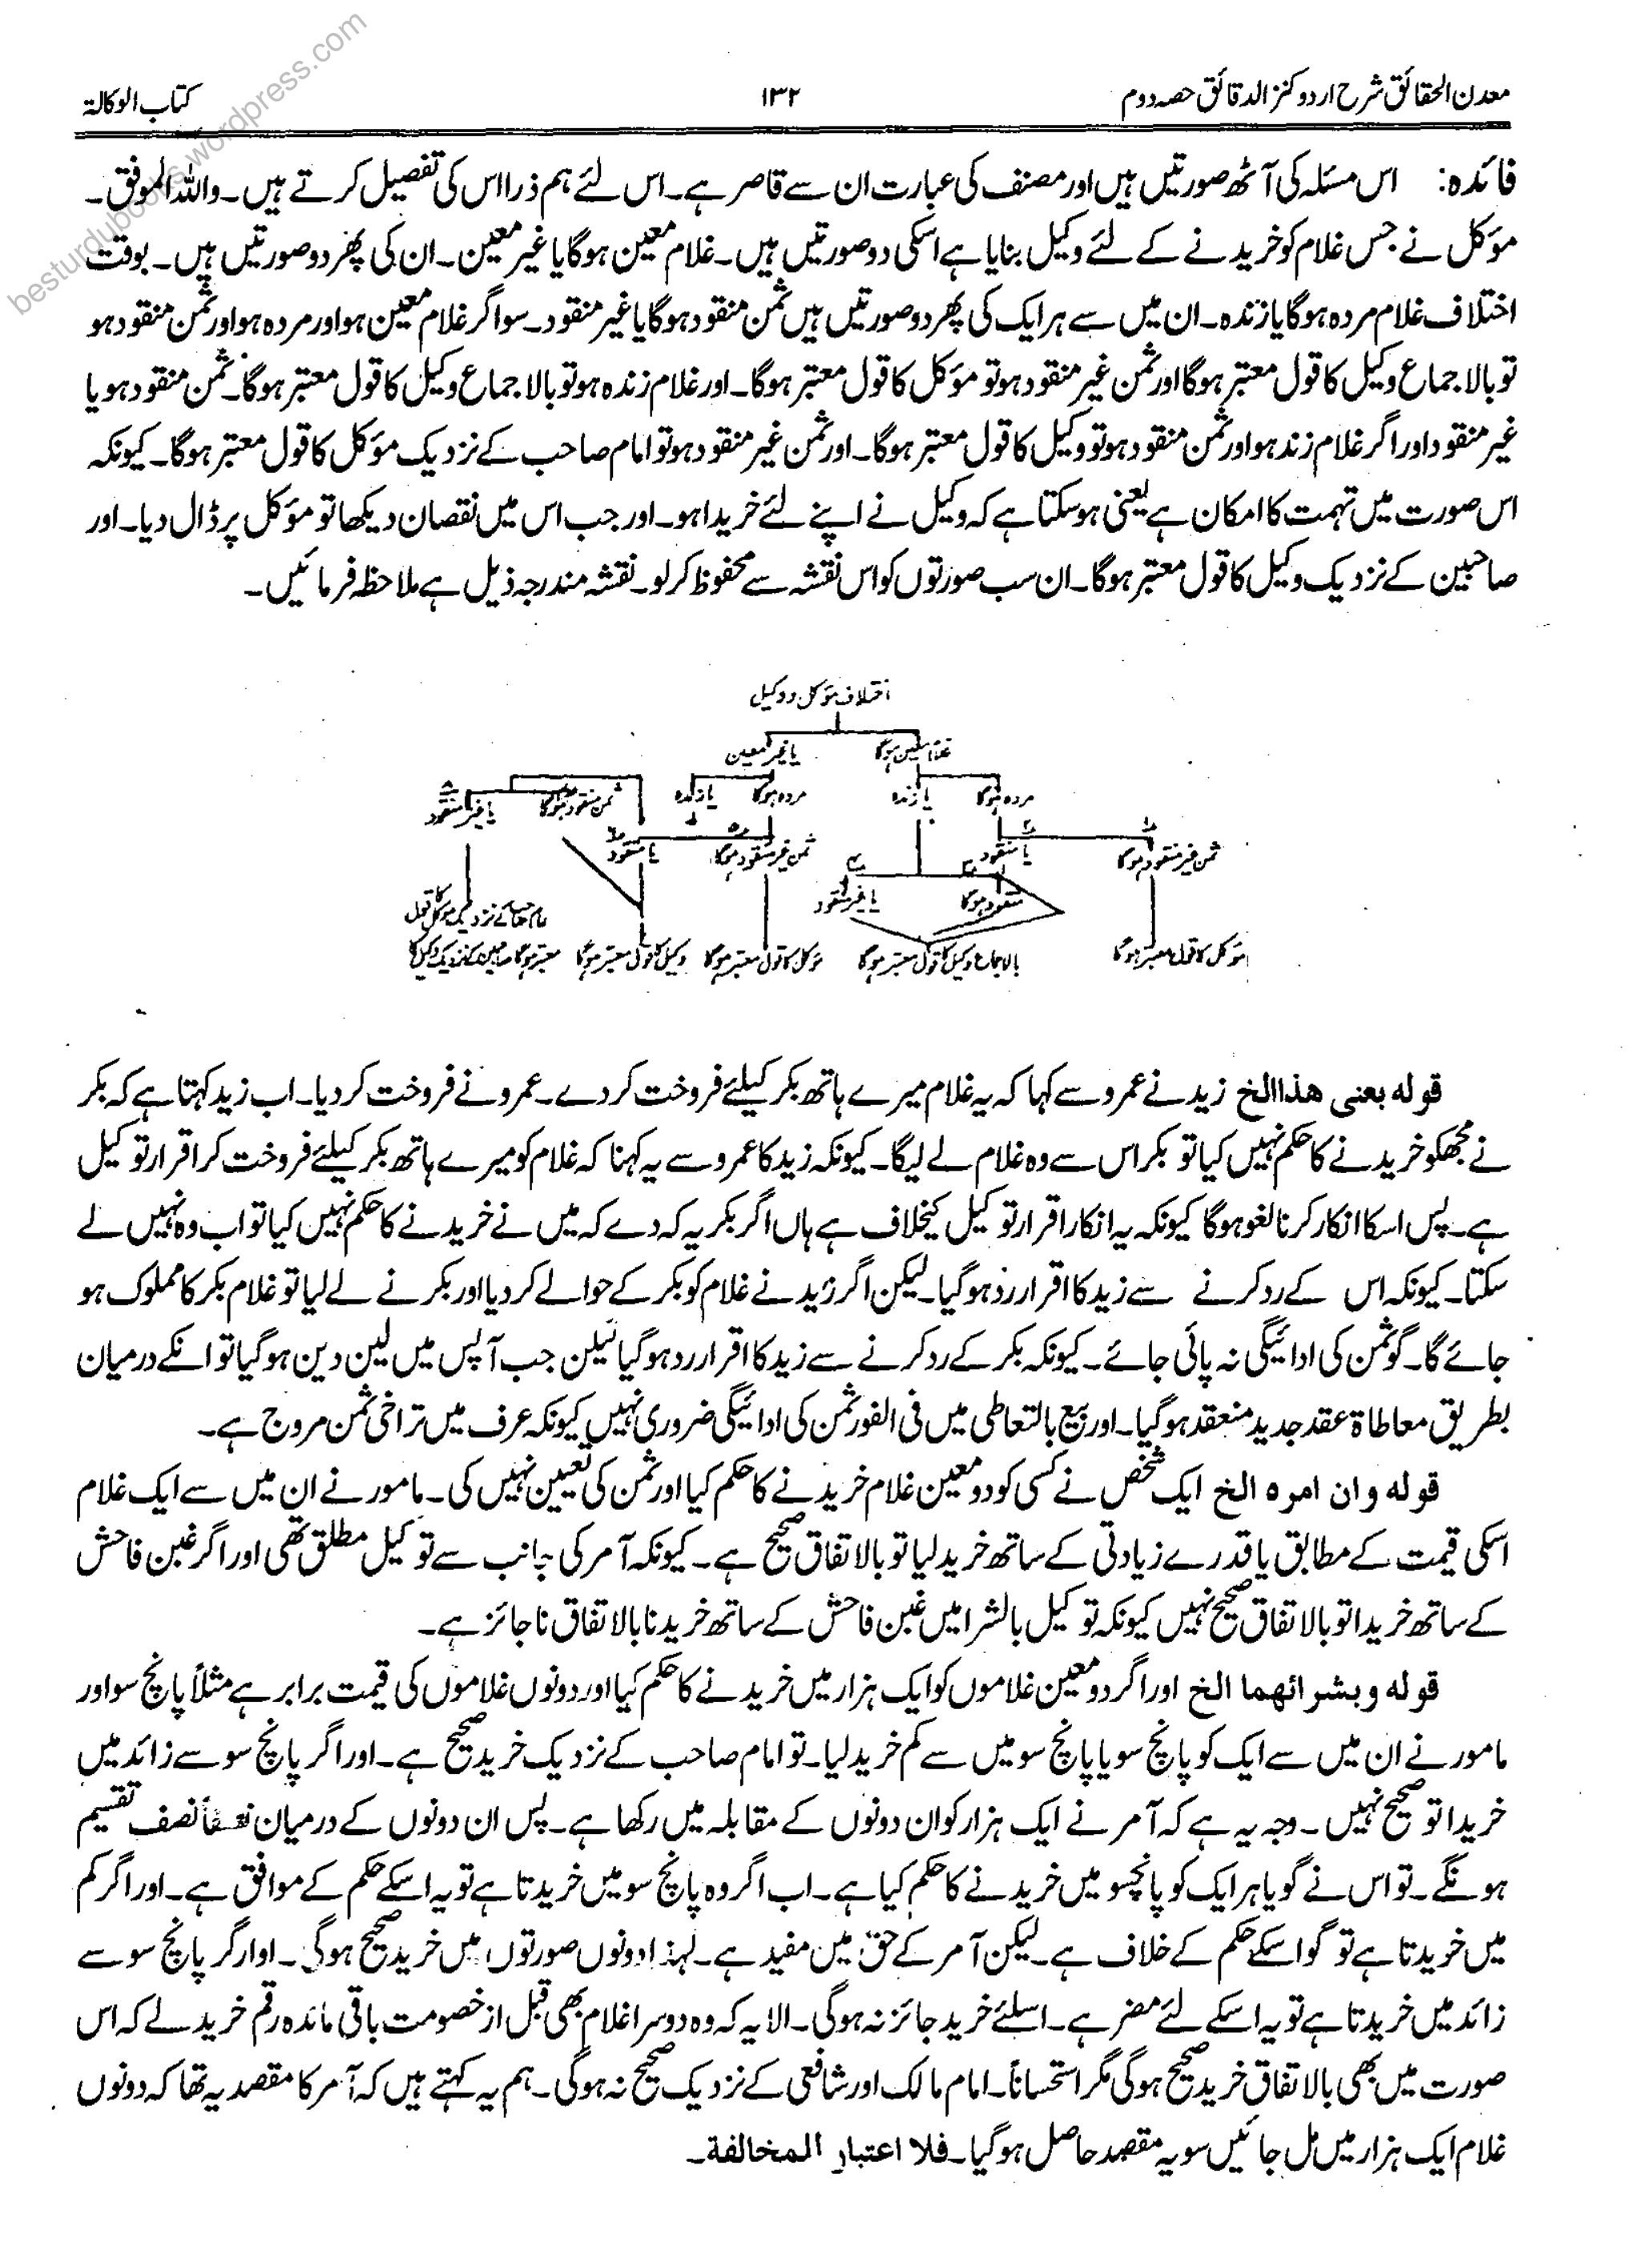 معدن الحقائق شرح اردو کنز الدقائق حصہ دوم
۱۳۲
کتاب الوکالۃ
besturdubooks.wordpress.com
فائدہ: اس مسئلہ کی آٹھ صورتیں ہیں اور مصنف کی عبارت ان سے قاصر ہے۔ اس لئے ہم ذرا اس کی تفصیل کرتے ہیں۔ واللہ الموفق۔
مؤکل نے جس غلام کو خریدنے کے لئے وکیل بنایا ہے اسکی دو صورتیں ہیں۔ غلام معین ہوگا یا غیر معین۔ ان کی پھر دو صورتیں ہیں۔ بوقت
اختلاف غلام مردہ ہوگا یا زندہ۔ ان میں سے ہر ایک کی پھر دو صورتیں ہیں ثمن منقود ہوگا یا غیر منقود۔ سو اگر غلام معین ہو اور مردہ ہو اور ثمن منقود ہو
تو بالاجماع وکیل کا قول معتبر ہوگا اور ثمن غیر منقود ہو تو مؤکل کا قول معتبر ہوگا۔ اور غلام زندہ ہو تو بالاجماع وکیل کا قول معتبر ہوگا۔ ثمن منقود ہو یا
غیر منقود اور اگر غلام زند ہو اور ثمن منقود ہو تو وکیل کا قول معتبر ہوگا۔ اور ثمن غیر منقود ہو تو امام صاحب کے نزدیک مؤکل کا قول معتبر ہوگا۔ کیونکہ
اس صورت میں تہمت کا امکان ہے یعنی ہو سکتا ہے کہ وکیل نے اپنے لئے خریدا ہو۔ اور جب اس میں نقصان دیکھا تو مؤکل پر ڈال دیا۔ اور
صاحبین کے نزدیک وکیل کا قول معتبر ہوگا۔ ان سب صورتوں کو اس نقشہ سے محفوظ کرلو۔ نقشہ مندرجہ ذیل ہے ملاحظہ فرمائیں۔
اختلاف مؤکل و وکیل
غلام معین ہوگا یا غیر معین
مردہ ہوگا یا زندہ مردہ ہوگا یا زندہ ثمن منقود ہوگا یا غیر منقود
ثمن غیر منقود ہوگا یا منقود ثمن غیر منقود ہوگا یا منقود
منقود ہوگا یا غیر منقود
مؤکل کا قول معتبر ہوگا بالاجماع وکیل کا قول معتبر ہوگا مؤکل کا قول معتبر ہوگا وکیل کا قول معتبر ہوگا
امام صاحب کے نزدیک مؤکل کا قول
معتبر ہوگا صاحبین کے نزدیک وکیل کا
قولہ بعنی ھذا الخ زید نے عمرو سے کہا کہ یہ غلام میرے ہاتھ بکر کیلئے فروخت کردے۔ عمرو نے فروخت کردیا۔ اب زید کہتا ہے کہ بکر
نے مجھکو خریدنے کا حکم نہیں کیا تو بکر اس سے وہ غلام لے لیگا۔ کیونکہ زید کا عمرو سے یہ کہنا کہ غلام کو میرے ہاتھ بکر کیلئے فروخت کر اقرار توکیل
ہے۔ پس اسکا انکار کرنا لغو ہوگا کیونکہ یہ انکار اقرار توکیل کیخلاف ہے ہاں اگر بکر یہ کہ دے کہ میں نے خریدنے کا حکم نہیں کیا تو اب وہ نہیں لے
سکتا۔ کیونکہ اس کے رد کرنے سے زید کا اقرار رد ہوگیا۔ لیکن اگر زید نے غلام کو بکر کے حوالے کردیا اور بکر نے لے لیا تو غلام بکر کا مملوک ہو
جائے گا۔ گو ثمن کی ادائیگی نہ پائی جائے۔ کیونکہ بکر کے رد کرنے سے زید کا اقرار رد ہوگیا لیکن جب آپس میں لین دین ہوگیا تو انکے درمیان
بطریق معاطاۃ عقد جدید منعقد ہوگیا۔ اور بیع بالتعاطی میں فی الفور ثمن کی ادائیگی ضروری نہیں کیونکہ عرف میں تراخی ثمن مروج ہے۔
قولہ وان امرہ الخ ایک شخص نے کسی کو دو معین غلام خریدنے کا حکم کیا اور ثمن کی تعیین نہیں کی۔ مامور نے ان میں سے ایک غلام
اسکی قیمت کے مطابق یا قدرے زیادتی کے ساتھ خرید لیا تو بالاتفاق صحیح ہے۔ کیونکہ آمر کی جانب سے توکیل مطلق تھی اور اگر غبن فاحش
کے ساتھ خریدا تو بالاتفاق صحیح نہیں کیونکہ توکیل بالشرا میں غبن فاحش کے ساتھ خریدنا بالاتفاق ناجائز ہے۔
قولہ وبشرائھما الخ اور اگر دو معین غلاموں کو ایک ہزار میں خریدنے کا حکم کیا اور دونوں غلاموں کی قیمت برابر ہے مثلاً پانچ سو اور
مامور نے ان میں سے ایک کو پانچ سو یا پانچ سو میں سے کم خرید لیا۔ تو امام صاحب کے نزدیک خرید صحیح ہے۔ اور اگر پانچ سو سے زائد میں
خریدا تو صحیح نہیں۔ وجہ یہ ہے کہ آمر نے ایک ہزار کو ان دونوں کے مقابلہ میں رکھا ہے۔ پس ان دونوں کے درمیان نصفاً نصف تقسیم
ہونگے۔ تو اس نے گویا ہر ایک کو پانچسو میں خریدنے کا حکم کیا ہے۔ اب اگر وہ پانچ سو میں خریدتا ہے تو یہ اسکے حکم کے موافق ہے۔ اور اگر کم
میں خریدتا ہے تو گو اسکے حکم کے خلاف ہے۔ لیکن آمر کے حق میں مفید ہے۔ لہذا دونوں صورتوں میں خرید صحیح ہوگی۔ اوارگر پانچ سو سے
زائد میں خریدتا ہے تو یہ اسکے لئے مضر ہے۔ اسلئے خرید جائز نہ ہوگی۔ الا یہ کہ وہ دوسرا غلام بھی قبل از خصومت باقی ماندہ رقم خرید لے کہ اس
صورت میں بھی بالاتفاق خرید صحیح ہوگی مگر استحساناً۔ امام مالک اور شافعی کے نزدیک صحیح نہ ہوگی۔ ہم یہ کہتے ہیں کہ آمر کا مقصد یہ تھا کہ دونوں
غلام ایک ہزار میں مل جائیں سو یہ مقصد حاصل ہوگیا۔ فلا اعتبار المخالفة۔